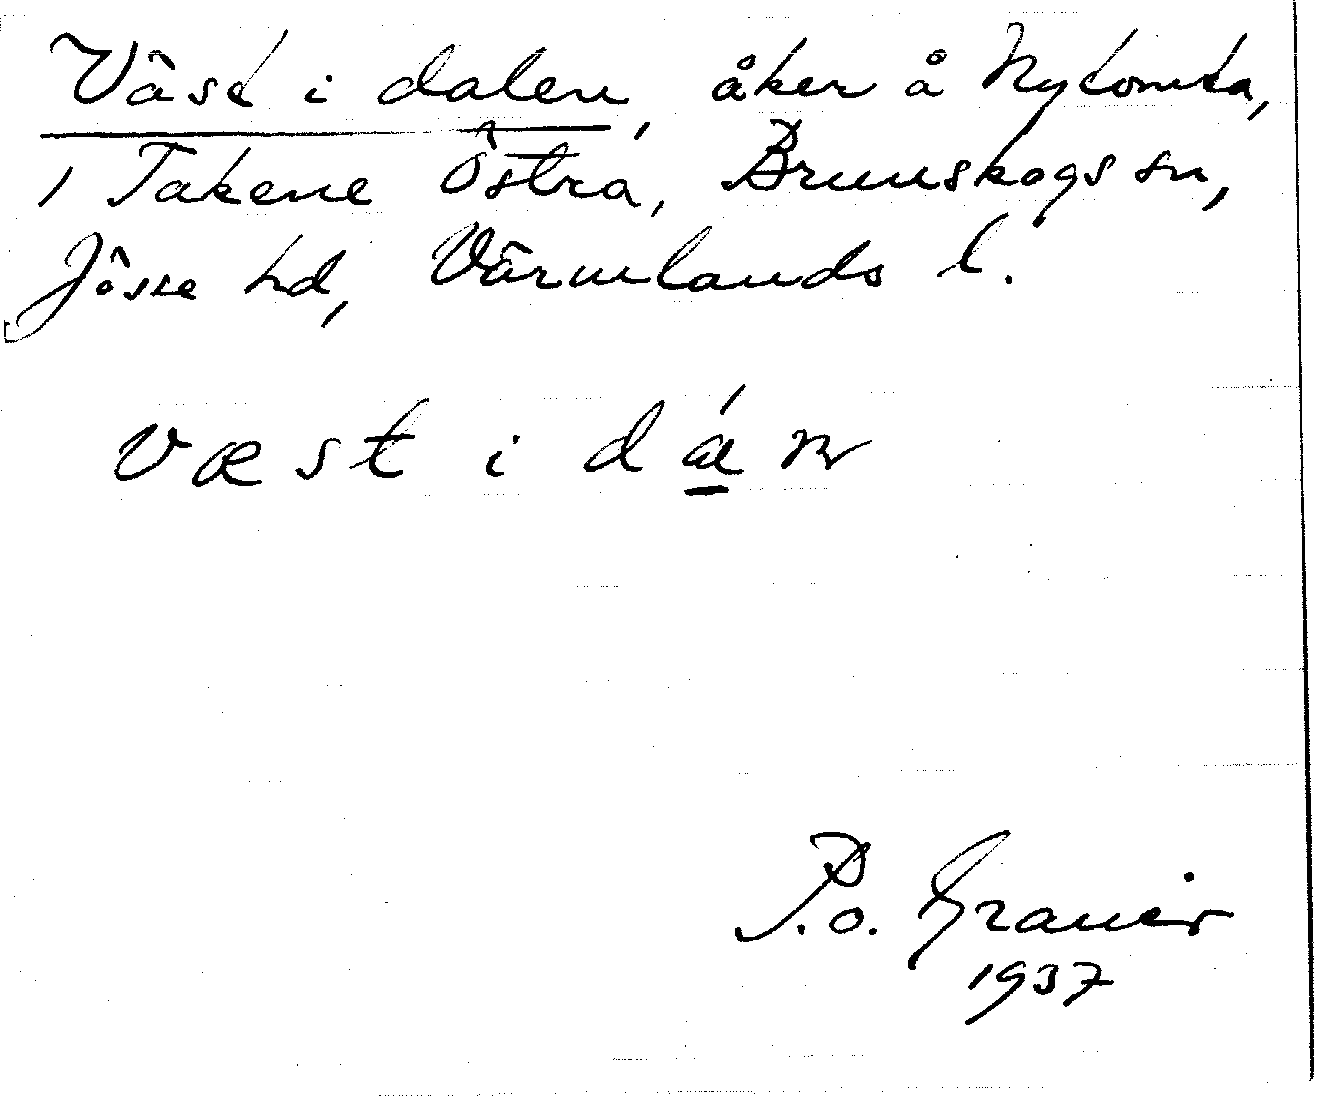 Väst i dalen, åker å Nytomta,
i Takene Östra, Brunskogs sn,
Jösse hd, Värmlands l.
væst i dán
P.o. Graner
1937